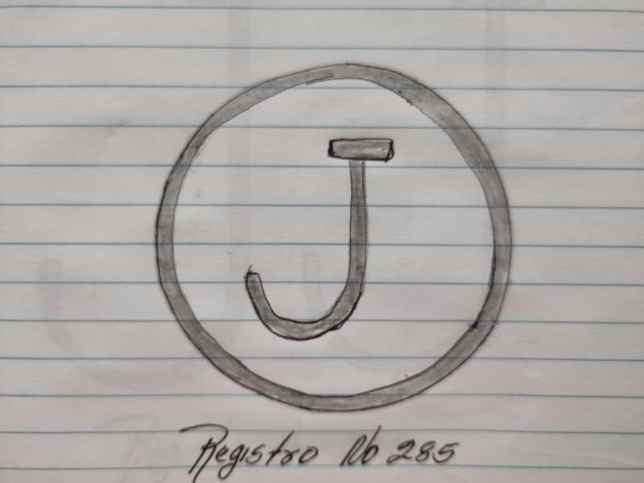 J
Registro No 285